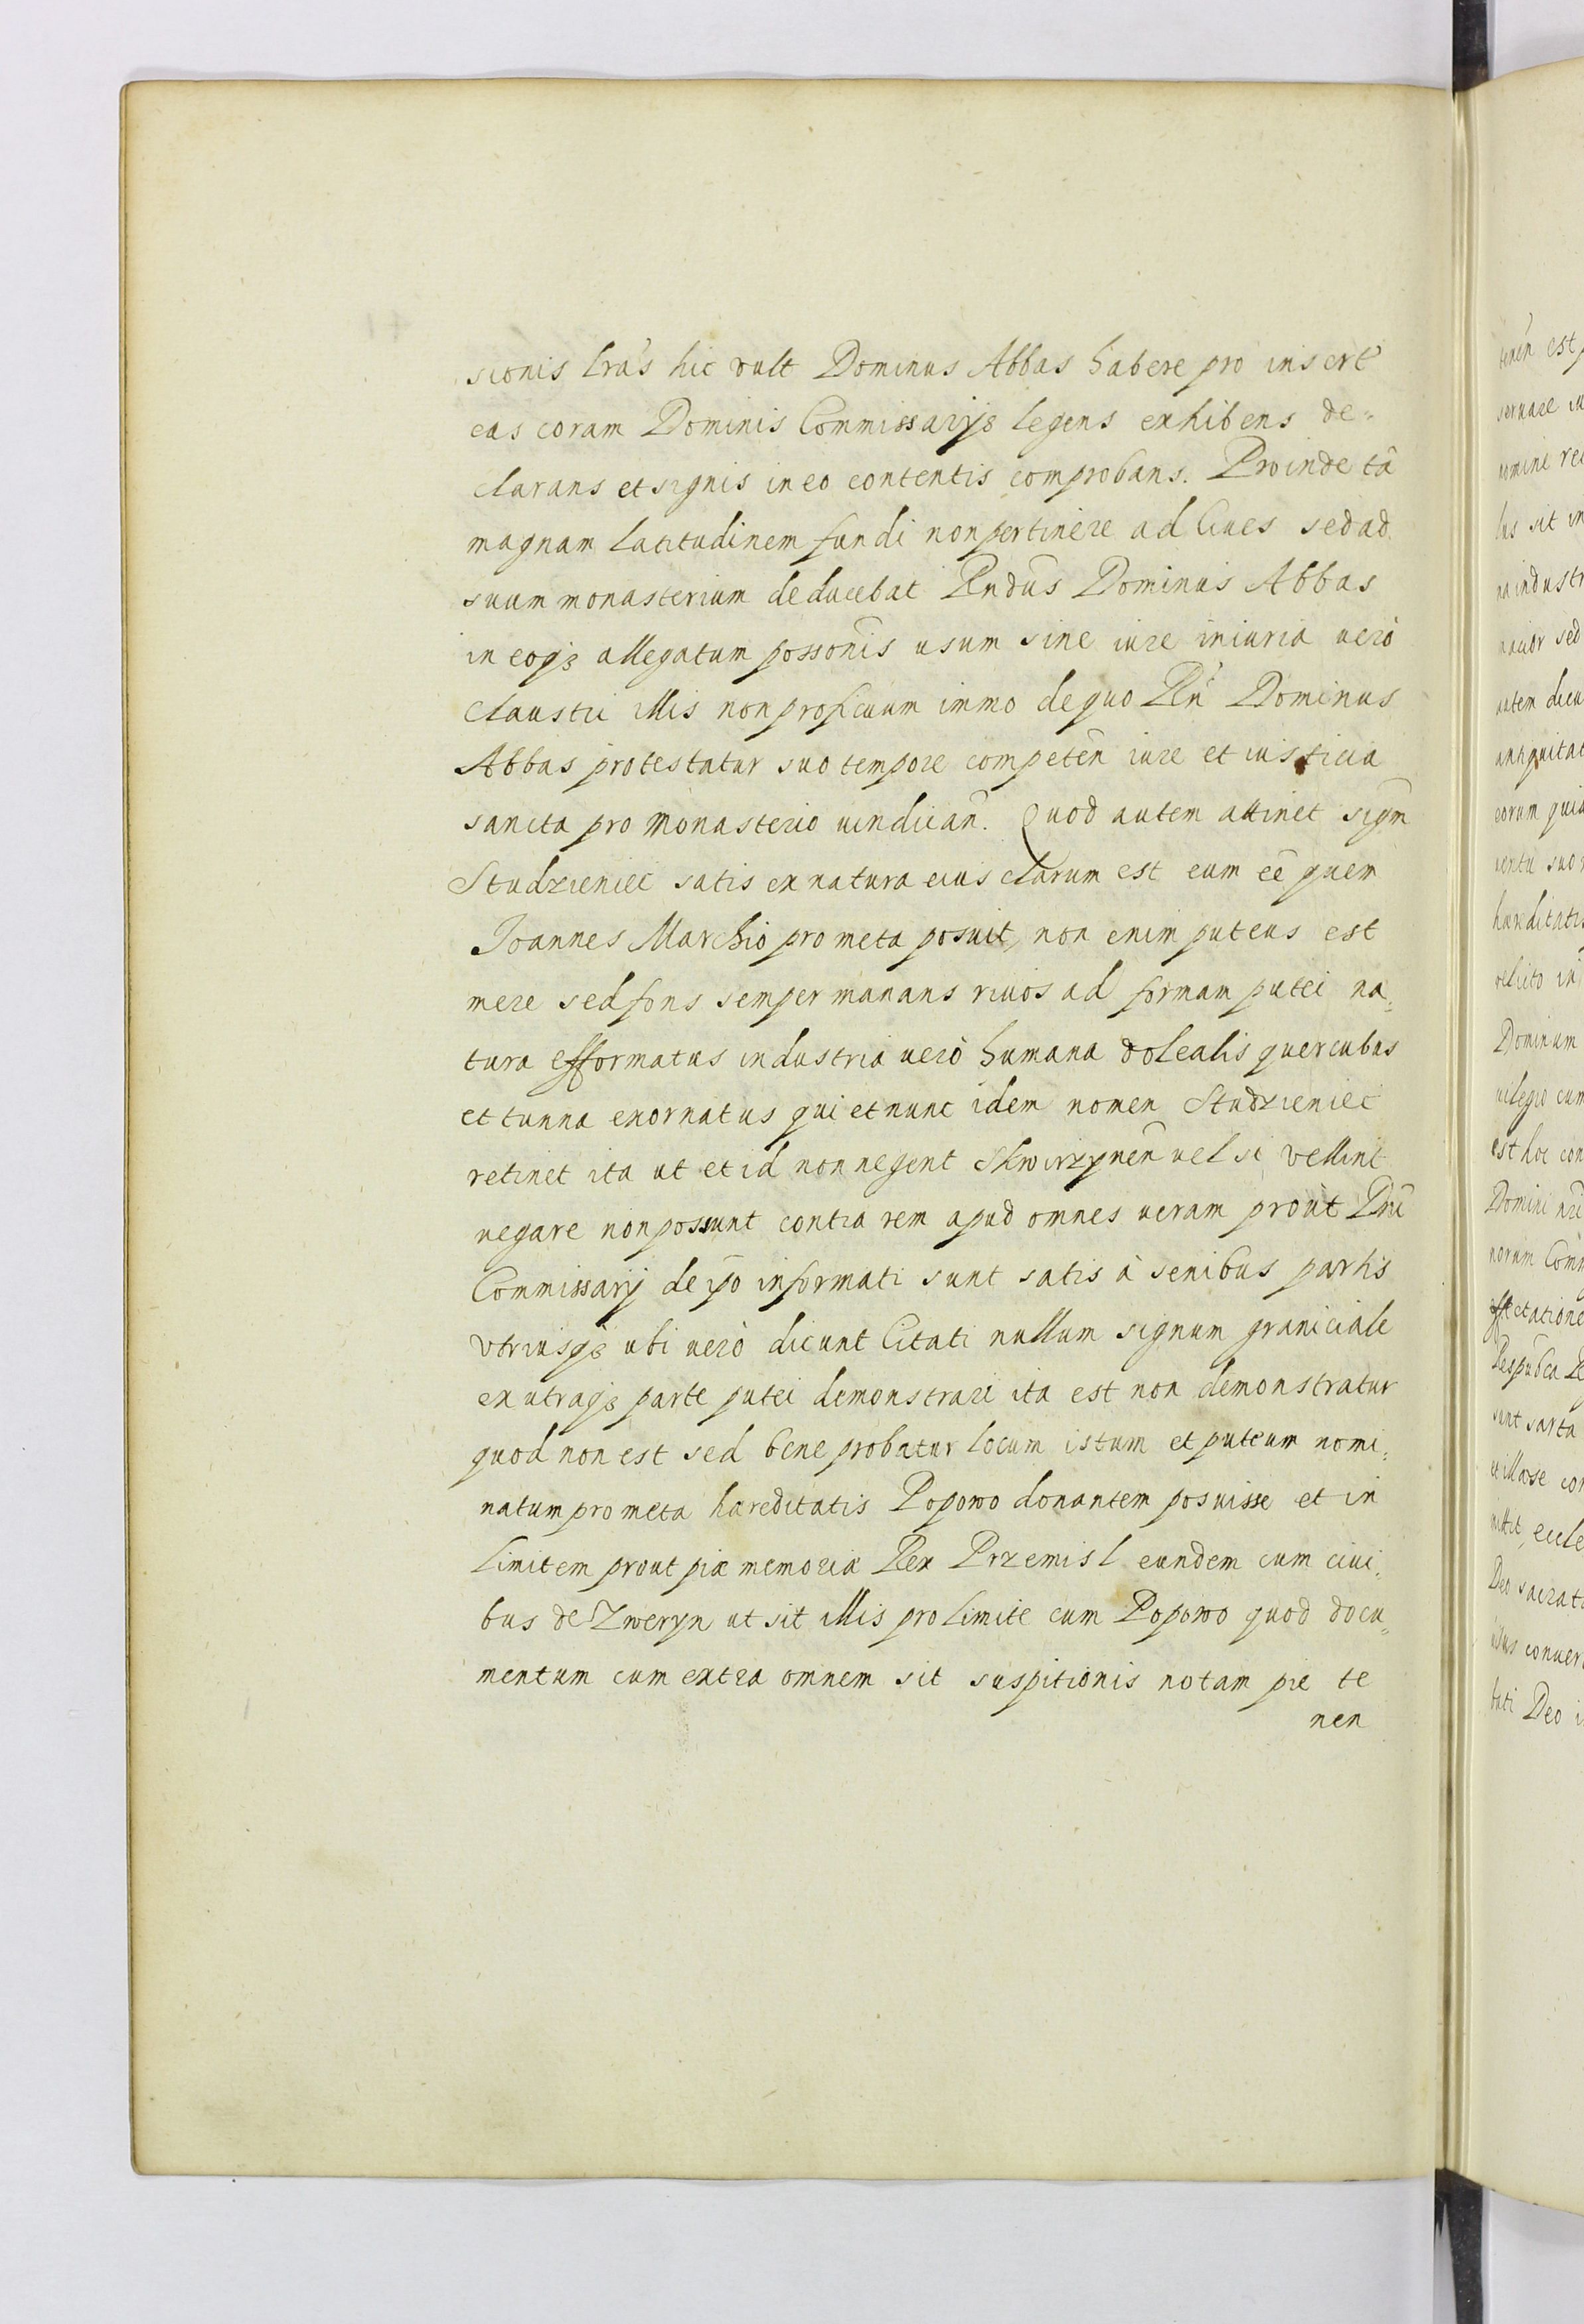 sionis lrãs hic vult Dominus Abbas habere pro insert
eas coram Dominis Commissarijs legens exhibens de=
clarans et signis in eo contentis comprobans. Proinde tã
magnam latitudinem fundi non pertinere ad Ciues sed ad
suum monasterium deducebat Rndus Dominus Abbas
in eoqꝫ allegatum possonis usum sine iure iniuria verò
Claustri illis non proficuum immo de quo Rn Dominus
Abbas protestatur suo tempore competeñ iure et iusticia
sancta pro Monasterio vindicañ. Quod autem attinet signm
Studzieniec satis ex natura eius clarum est eum eê quem
Joannes Marchio pro meta posuit, non enim puteus est
mere sed fons semper manans riuos ad formam putei na=
tura efformatus industria verò humana dolealis quercubus
et tunna exornatus qui et nunc idem nomen Studzieniec
retinet ita ut et id non negent Skwirzyneñ vel si vellint
negare non possunt contra rem apud omnes veram proùt Dni
Commissarij de ipo informati sunt satis à senibus partis
vtriusqꝫ ubi verò dicunt Citati nullum signum graniciale
ex utraqꝫ parte putei demonstrari ita est non demonstratur
quod non est sed bene probatur locum istum et puteum nomi=
natum pro meta hæreditatis Popowo donantem posuisse et in
limitem prout piæ memoriæ Rex Przemisl eundem cum ciui=
bus de Zweryn ut sit illis pro limite cum Popowo quod docu=
mentum cum extra omnem sit suspitionis notam pie te
nen